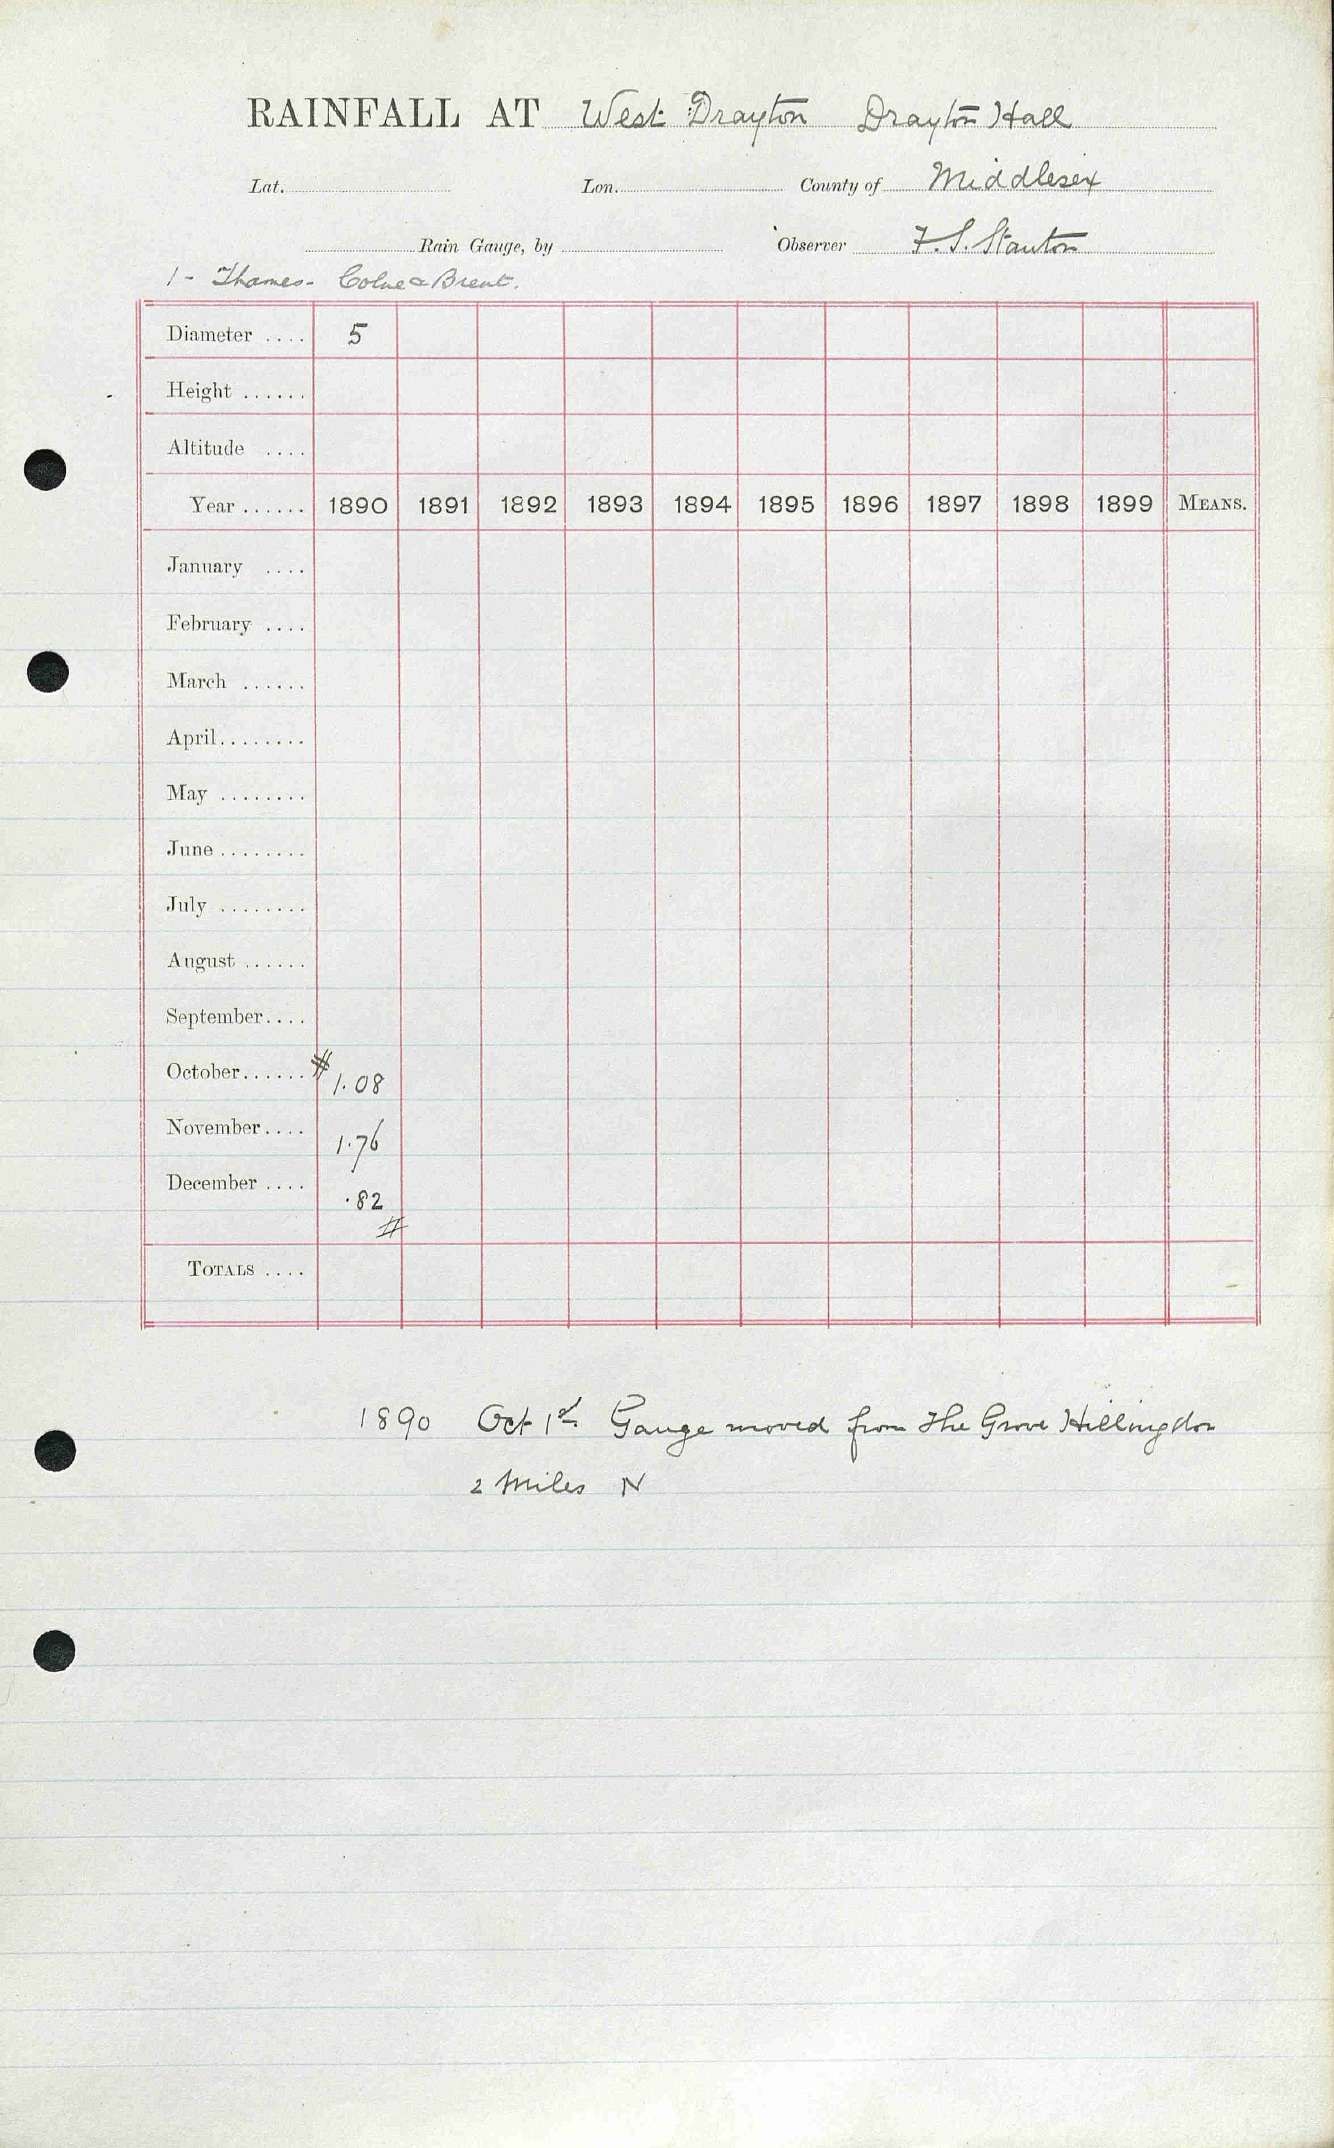 RAINFALL AT West Drayton Drayton Hall
Lat. Lon. County of Middlesex
Rain Gauge, by Observer F. S. Stanton
1 - Thames - Colne & Brent.
Diameter .... 5
Height ......
Altitude ....
Year ...... 1890 1891 1892 1893 1894 1895 1896 1897 1898 1899 MEANS.
January ....
February ....
March ......
April........
May ........
June ........
July ........
August ......
September....
October...... # 1.08
November.... 1.76
December .... .82
#
TOTALS ....
1890 Oct 1st Gauge moved from The Grove Hillingdon
2 Miles N